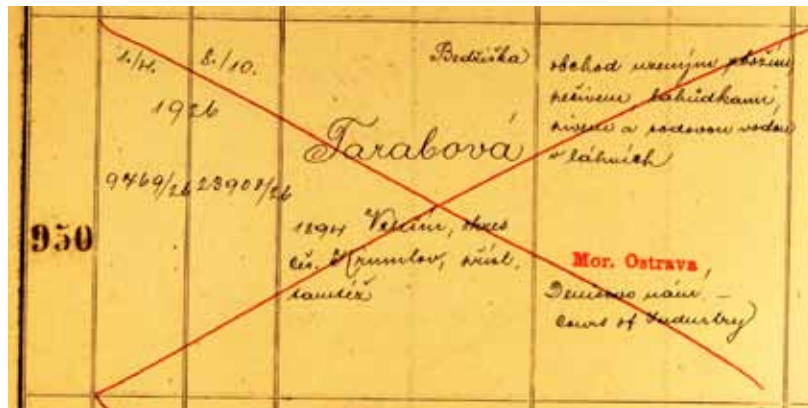 950
1./4. 8./10.
1926
9469/26 23908/26
Bedřiška
Tarabová
1894 Větřín, okres
čes. Krumlov, přísl.
tamtéž
obchod uzeným zbožím,
pečivem, lahůdkami,
pivem a sodovou vodou
v láhvích
Mor. Ostrava
Denisovo nám. –
Court of Industry